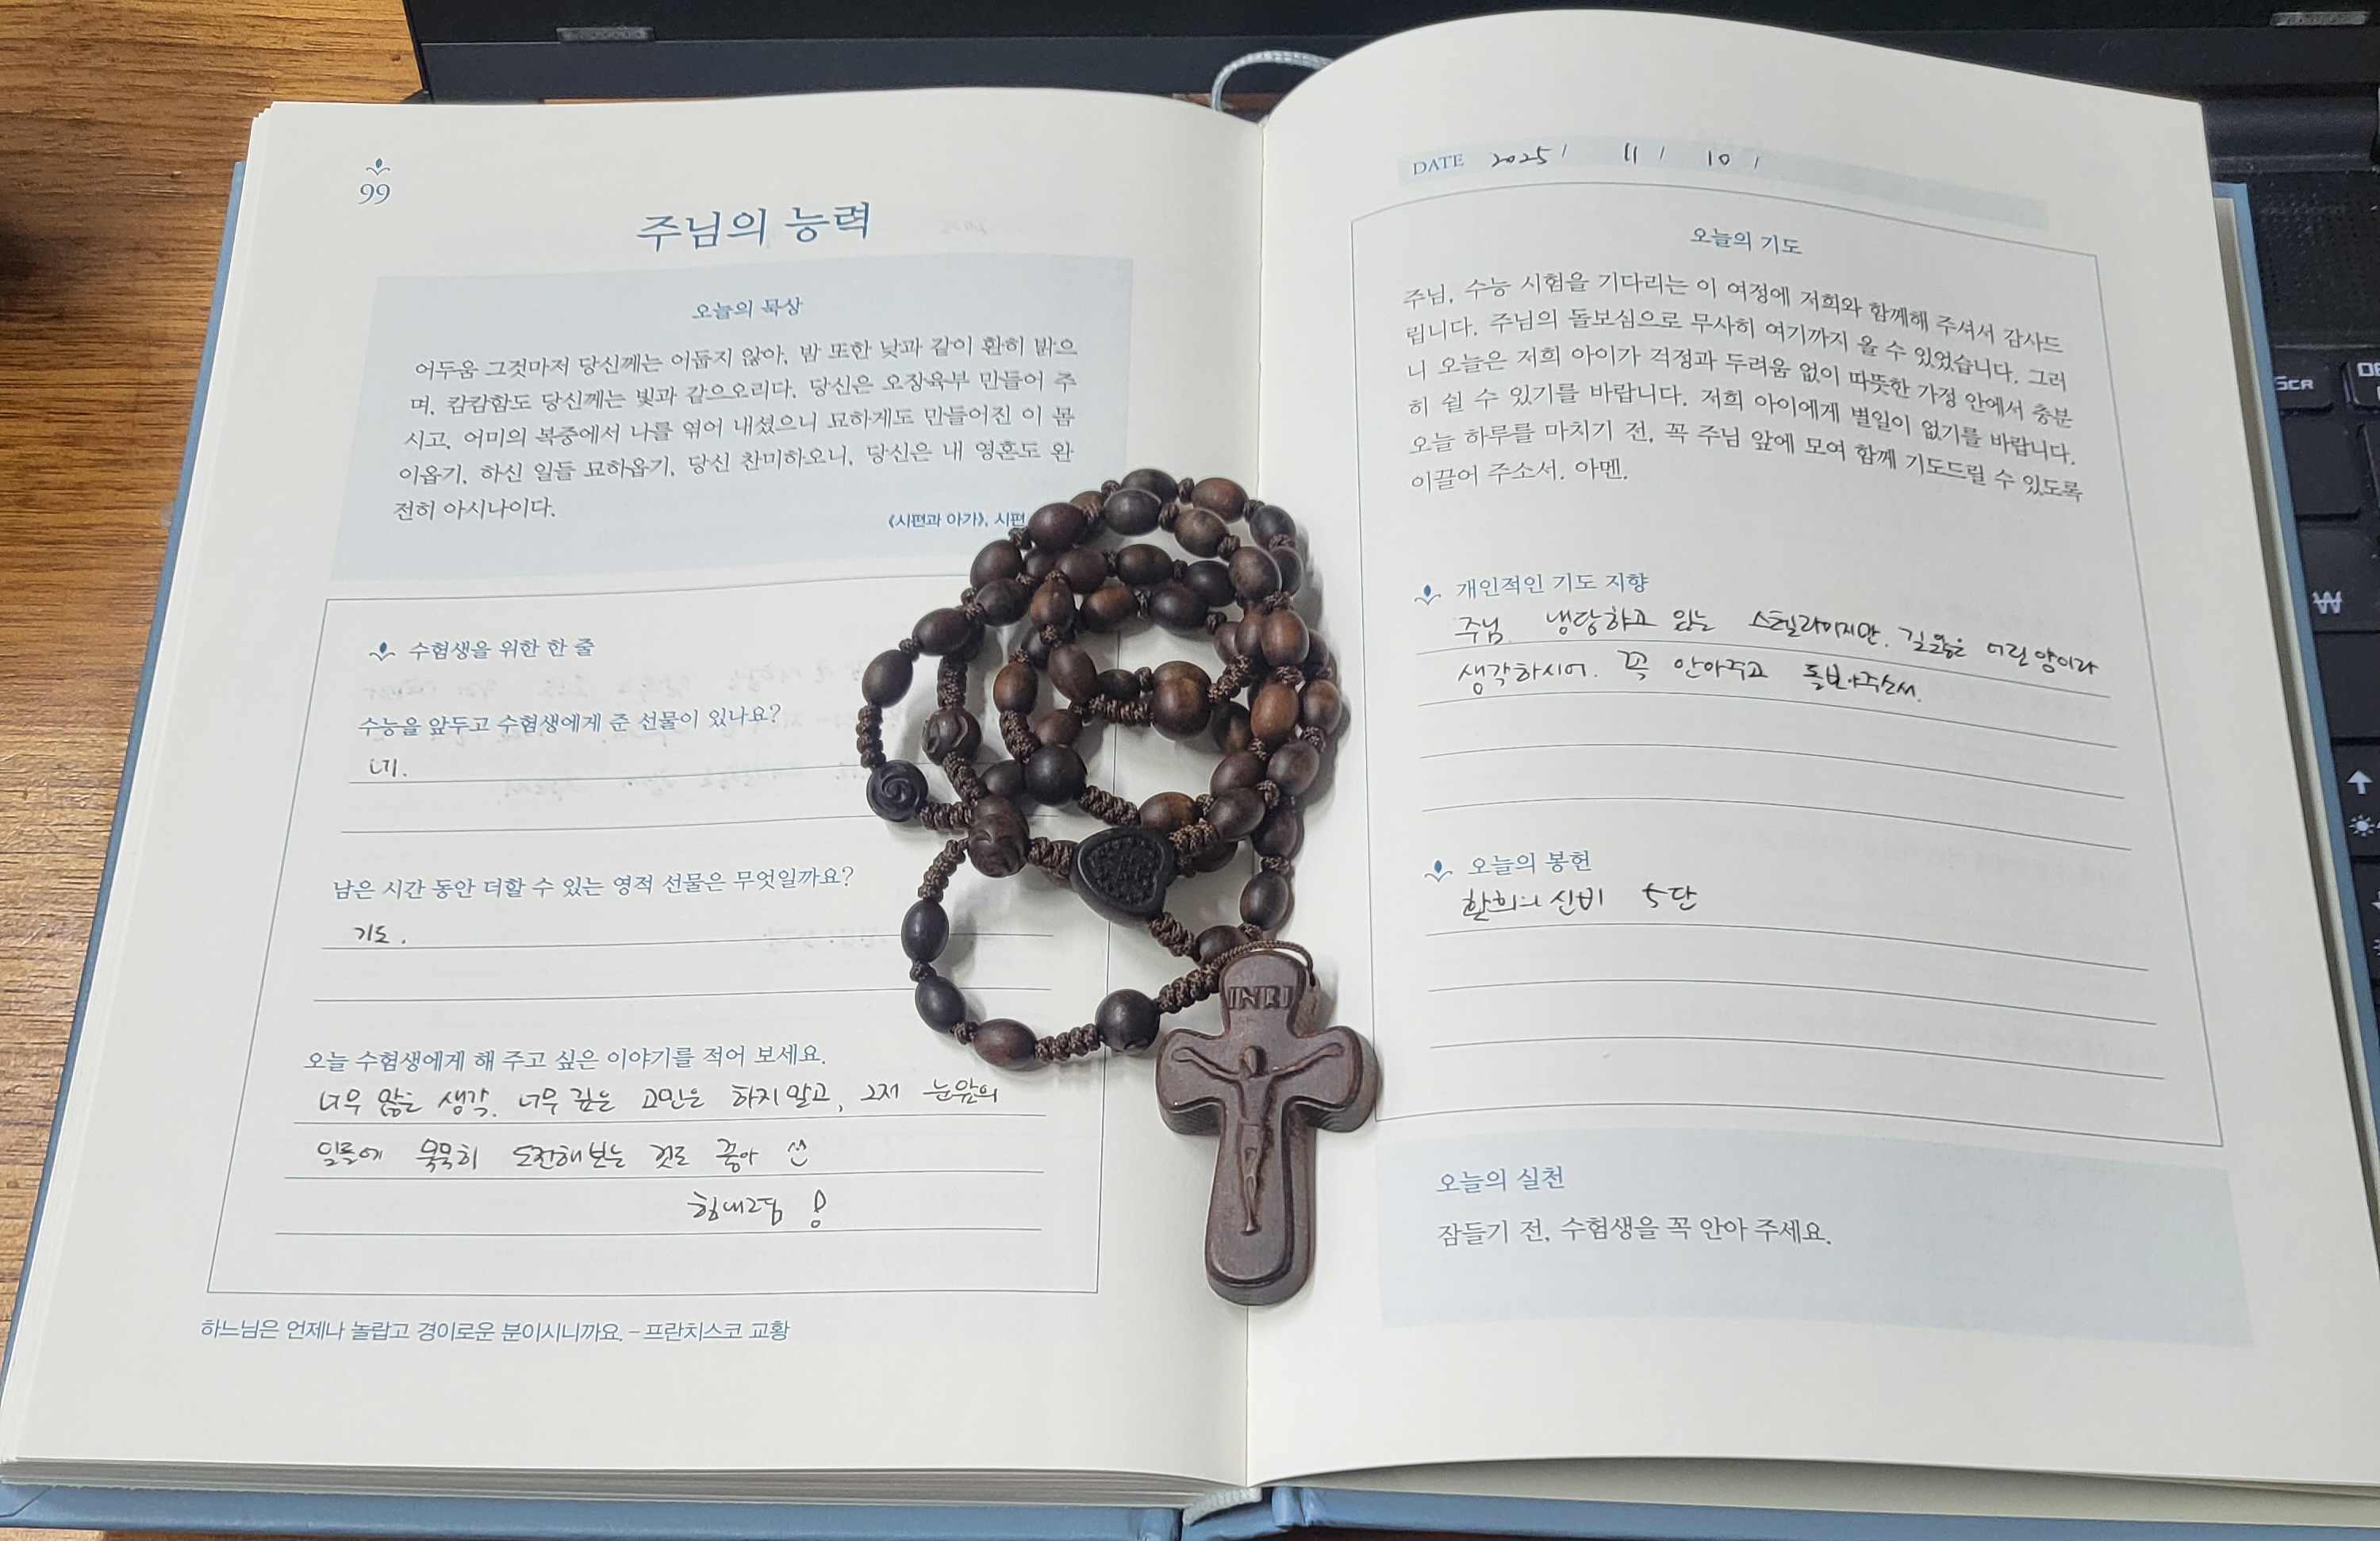 99
주님의 능력
오늘의 묵상
어두움 그것마저 당신께는 어둡지 않아, 밤 또한 낮과 같이 환히 밝으
며, 캄캄함도 당신께는 빛과 같으오리다. 당신은 오장육부 만들어 주
시고, 어미의 복중에서 나를 엮어 내셨으니 묘하게도 만들어진 이 몸
이옵기, 하신 일들 묘하옵기, 당신 찬미하오니, 당신은 내 영혼도 완
전히 아시나이다.
《시편과 아가》, 시편
수험생을 위한 한 줄
수능을 앞두고 수험생에게 준 선물이 있나요?
네.
남은 시간 동안 더할 수 있는 영적 선물은 무엇일까요?
기도.
오늘 수험생에게 해 주고 싶은 이야기를 적어 보세요.
너무 많은 생각. 너무 깊은 고민은 하지말고, 그저 눈앞의
일들에 묵묵히 도전해보는 것도 좋아
힘내그탐 !
하느님은 언제나 놀랍고 경이로운 분이시니까요. – 프란치스코 교황
DATE 2025 / 11 / 10 /
오늘의 기도
주님, 수능 시험을 기다리는 이 여정에 저희와 함께해 주셔서 감사드
립니다. 주님의 돌보심으로 무사히 여기까지 올 수 있었습니다. 그러
니 오늘은 저희 아이가 걱정과 두려움 없이 따뜻한 가정 안에서 충분
히 쉴 수 있기를 바랍니다. 저희 아이에게 별일이 없기를 바랍니다.
오늘 하루를 마치기 전, 꼭 주님 앞에 모여 함께 기도드릴 수 있도록
이끌어 주소서. 아멘.
개인적인 기도 지향
주님 냉담하고 있는 스텔라이지만. 길잃은 어린 양이라
생각하시어. 꼭 안아주고 돌보아주소서.
오늘의 봉헌
환희의 신비 5단
오늘의 실천
잠들기 전, 수험생을 꼭 안아 주세요.
INRI
SCR
₩